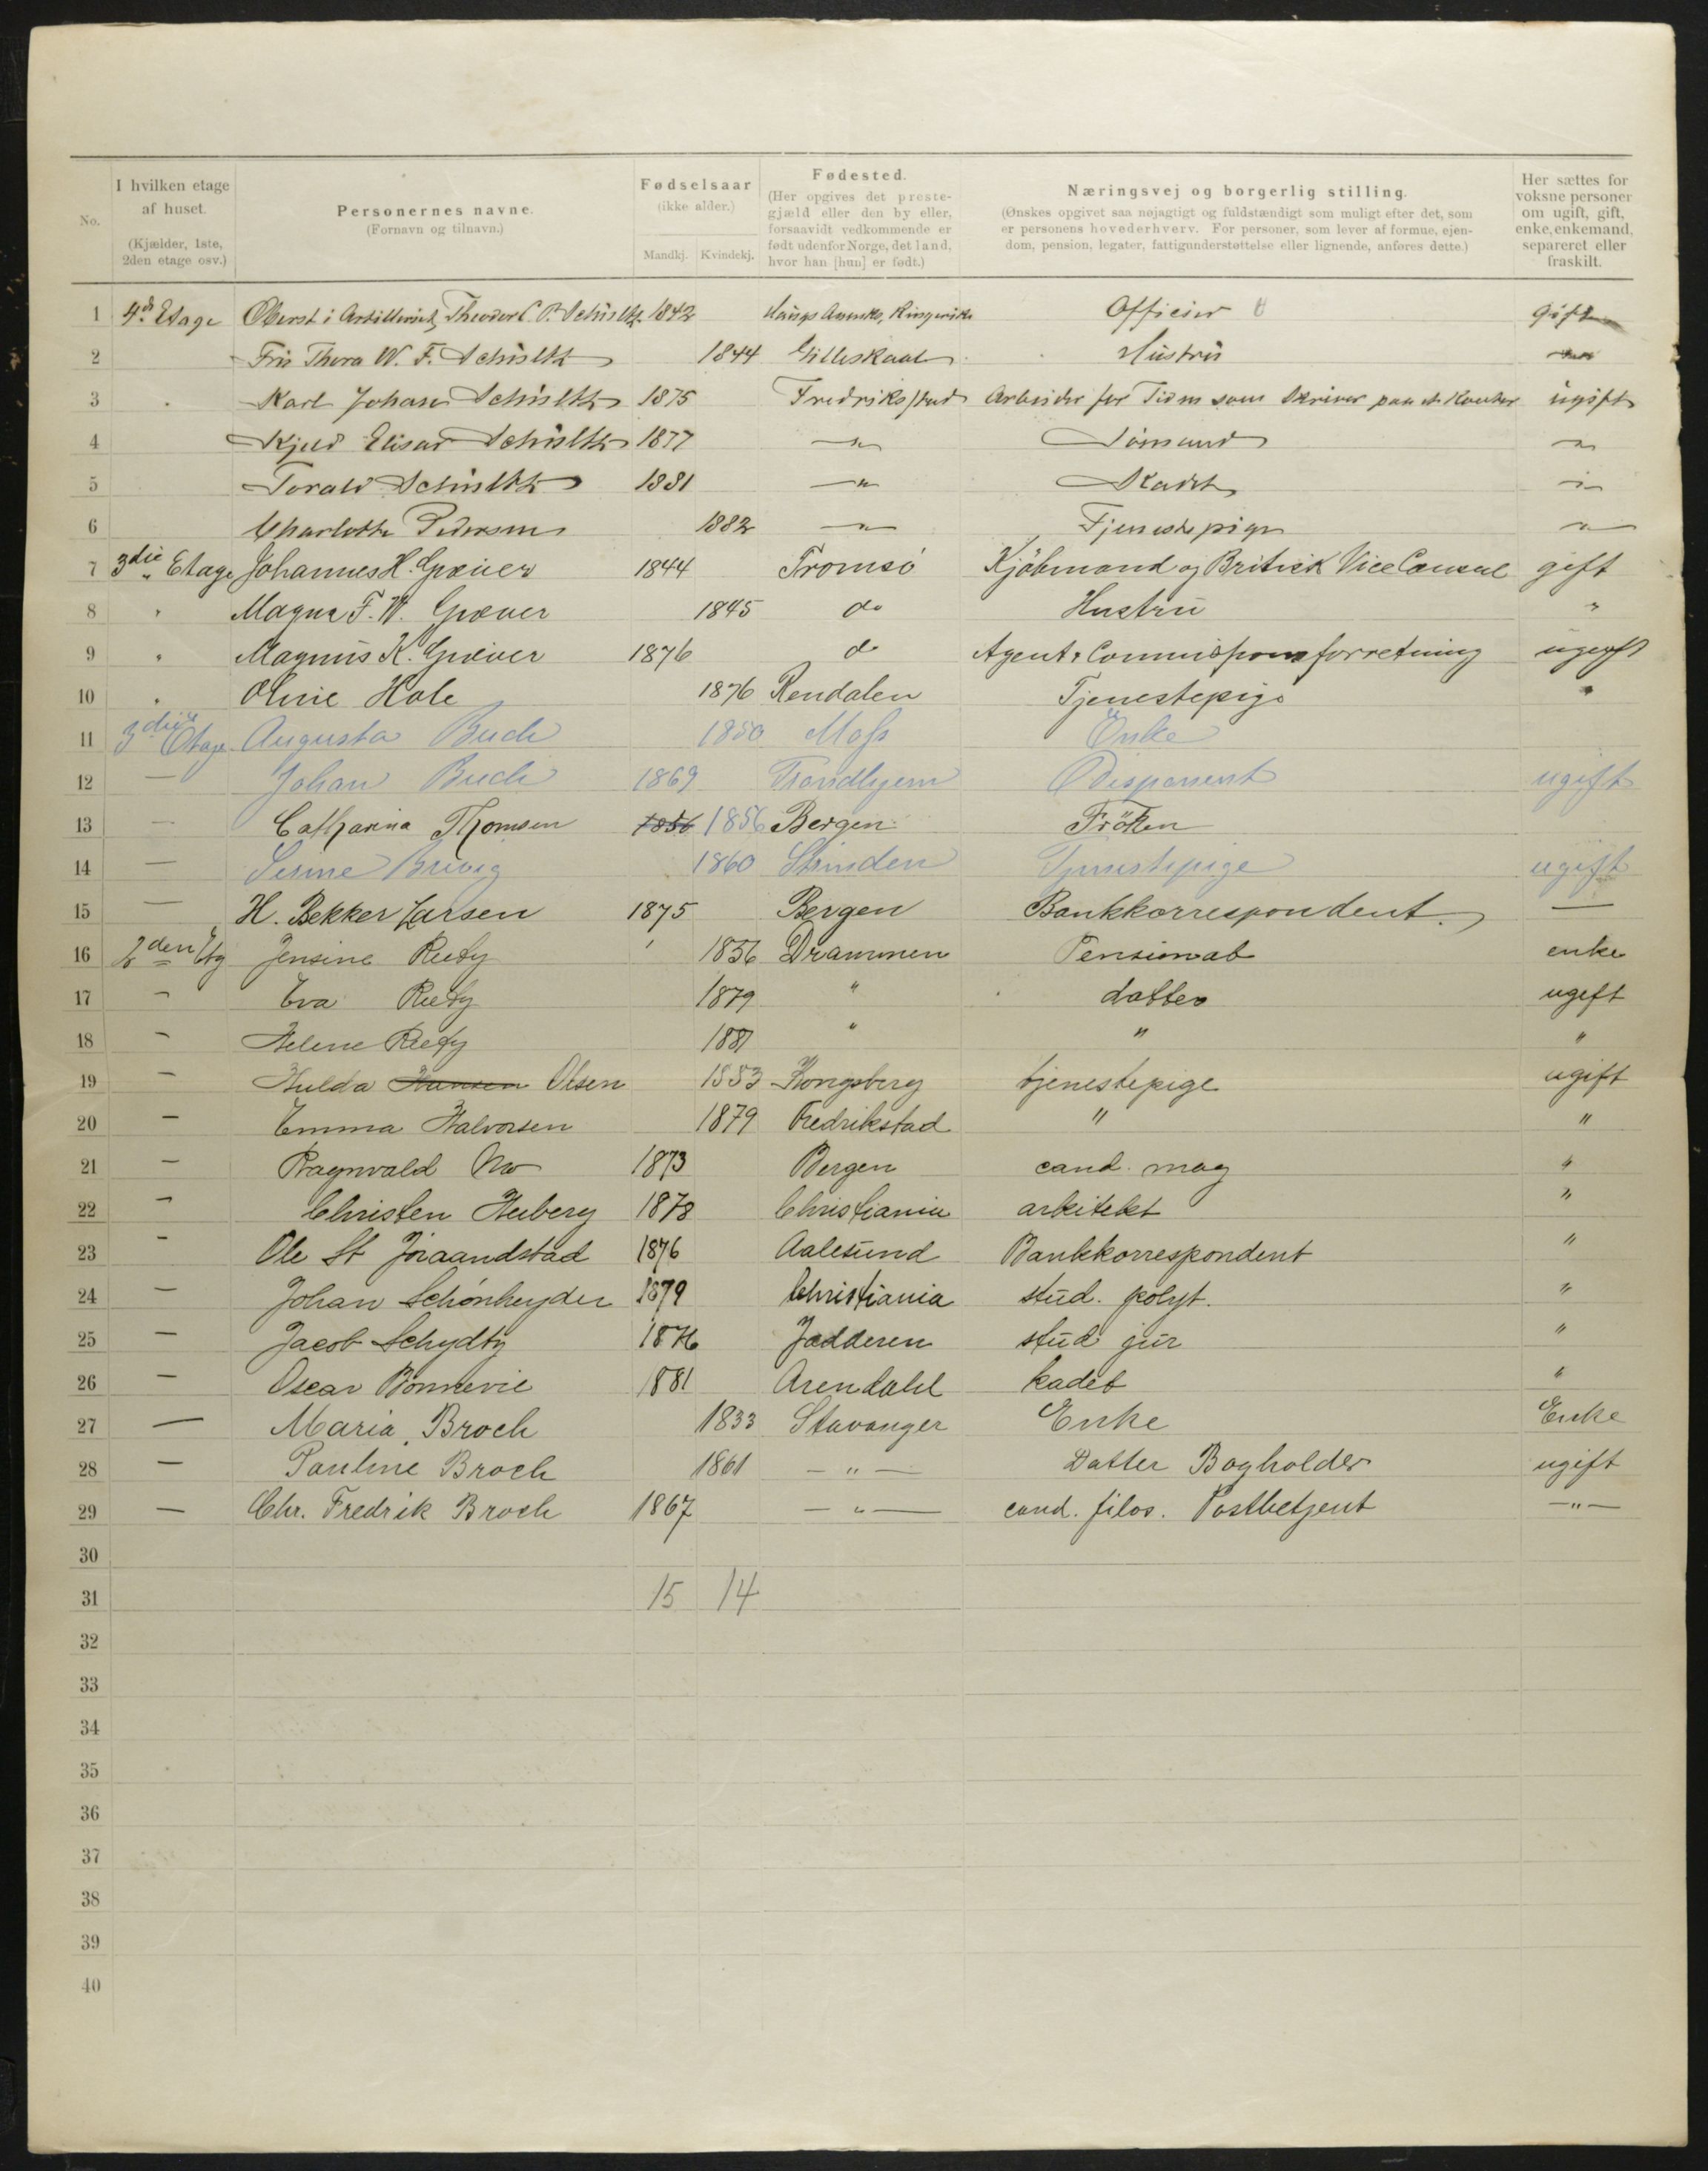 No.
I hvilken etage
af huset.
(Kjælder, 1ste,
2den etage osv.)
Personernes navne.
(Fornavn og tilnavn.)
Fødselsaar
(ikke alder.)
Mandkj. Kvindekj.
Fødested.
(Her opgives det preste-
gjæld eller den by eller,
forsaavidt vedkommende er
født udenfor Norge, det land,
hvor han [hun] er født.)
Næringsvej og borgerlig stilling.
(Ønskes opgivet saa nøjagtigt og fuldstændigt som muligt efter det, som
er personens hovederhverv. For personer, som lever af formue, ejen-
dom, pension, legater, fattigunderstøttelse eller lignende, anføres dette.)
Her sættes for
voksne personer
om ugift, gift,
enke, enkemand,
separeret eller
fraskilt.
1 4de Etage Oberst i Artilleriet, Theodor C. P. Schultz 1842 Ringerike Officier gift
2 Fru Thora W. F. Schultz 1844 Gilleskaal Hustru "
3 Karl Johan Schultz 1875 Fredrikstad Arbeider for Tiden som Skriver paa et Kontor ugift
4 Kjeld Elisar Schultz 1877 " Sømand "
5 Torald Schultz 1881 " Kadet "
6 Charlotte Pedersen 1882 " Tjenestepige "
7 3die Etage Johannes H. Græver 1844 Tromsö Kjöbmand og Britisk Vice Consul gift
8 " Magna F. W. Græver 1845 do Hustru "
9 " Magnus K. Græver 1876 do Agent & Commissionsforretning ugift
10 " Oline Hole 1876 Rendalen Tjenestepige "
11 3die Etage Augusta Buch 1850 Moss Enke
12 — Johan Buch 1869 Trondhjem Disponent ugift
13 — Catharina Thomsen 1856 1856 Bergen Fröken
14 — Brevig 1860 Strinden Tjenestepige ugift
15 — H. Bekker Larsen 1875 Bergen Bankkorrespondent —
16 2den Etg Jensine Reefy 1856 Drammen Pensionat enke
17 — Eva Reefy 1879 " datter ugift
18 — Helene Reefy 1881 " " "
19 — Hulda Hansen Olsen 1883 Kongsberg tjenestepige ugift
20 — Emma Halvorsen 1879 Fredrikstad " "
21 — Ragnvald 1873 Bergen cand. mag "
22 — Christen Heiberg 1878 Christiania arkitekt "
23 — Ole St Joraandstad 1876 Aalesund Bankkorrespondent "
24 — Johan Schönheyder 1879 Christiania stud. polyt. "
25 — Jacob Schydtz 1876 Jædderen stud jur "
26 — Oscar Bonnevie 1881 Arendahl kadet "
27 — Maria Broch 1833 Stavanger Enke Enke
28 — Pauline Broch 1861 — " — Datter Bogholder ugift
29 — Chr. Fredrik Broch 1867 — " — cand. filos. Postbetjent — " —
30
31 15 14
32
33
34
35
36
37
38
39
40